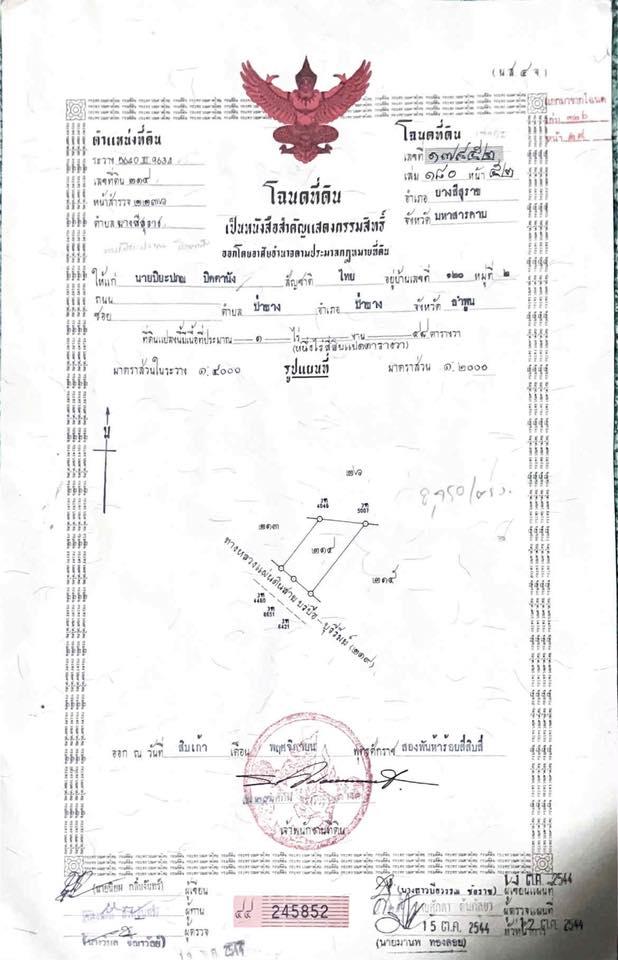 (น.ส. ๔ จ)
ตำแหน่งที่ดิน
ระวาง 5640 III 9634
เลขที่ดิน ๒๑๔
หน้าสำรวจ ๒๒๗๖
ตำบล
โฉนดที่ดิน
เลขที่ ๑๗๔๕๒
เล่ม ๑๘๐ หน้า ๕๒
อำเภอ บางสีสุราช
จังหวัด มหาสารคาม
หน้า ๒๙
โฉนดที่ดิน
เป็นหนังสือสำคัญแสดงกรรมสิทธิ์
ออกโดยอาศัยอำนาจตามประมวลกฎหมายที่ดิน
ให้แก่ นายปิยะปณ ปิตตานัง สัญชาติ ไทย อยู่บ้านเลขที่ ๑๒๐ หมู่ที่ ๒
ถนน
ซอย ตำบล ป่าซาง อำเภอ ป่าซาง จังหวัด ลำพูน
ที่ดินแปลงนี้มีเนื้อที่ประมาณ ๑ ไร่ งาน ๔๘ ตารางวา
(หนึ่งไร่สี่สิบแปดตารางวา)
มาตราส่วนในระวาง ๑:๔๐๐๐ รูปแผนที่ มาตราส่วน ๑:๒๐๐๐
น
๒๖
๒๑๓
๒๑๔
๒๑๕
วพ 4646
วพ 5007
ทางหลวงแผ่นดินสาย บรบือ - บุรีรัมย์ (๒๑๙)
วพ 4480
วพ 6651
วพ 6421
ออก ณ วันที่ สิบเก้า เดือน พฤศจิกายน พุทธศักราช สองพันห้าร้อยสี่สิบสี่
เจ้าพนักงานที่ดิน
(นายนิยม กลิ่นจันทร์) ผู้เขียน
ผู้ทาน
ผู้ตรวจ
๔๔ 245852
ผู้เขียนแผนที่
ผู้ตรวจแผนที่
15 ต.ค. 2544
12 ต.ค. 2544
(นายมานพ ทองลอย)